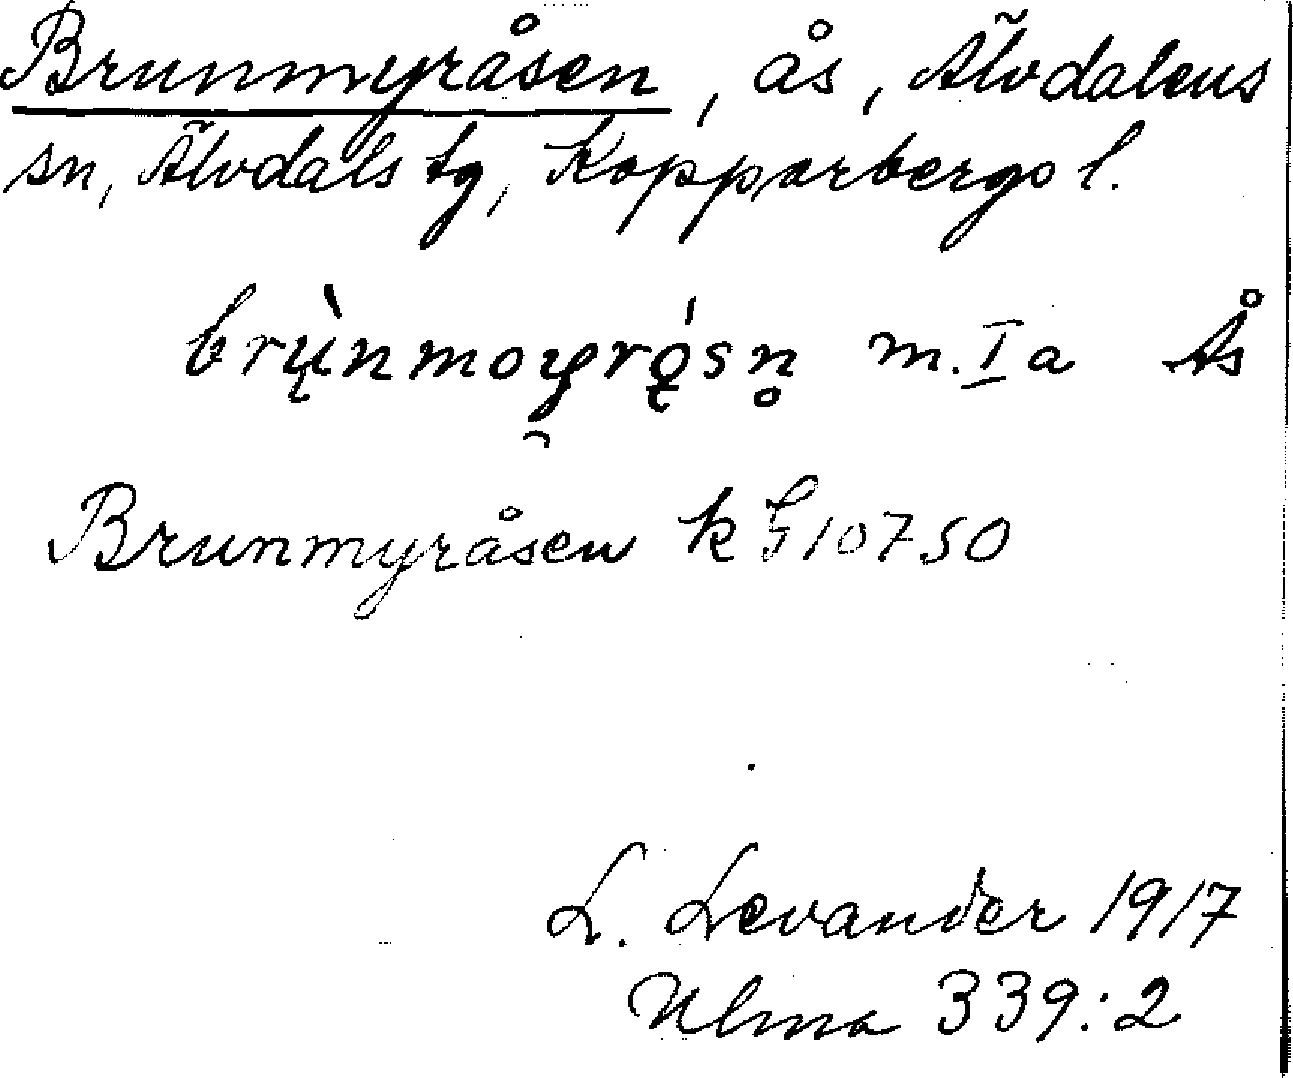 Brunmyråsen, ås, Älvdalens
sn, Älvdals tg, Kopparbergs l.
m. I a Ås
Brunmyråsen k G 10750
L. Levander 1917
Ulma 339:2